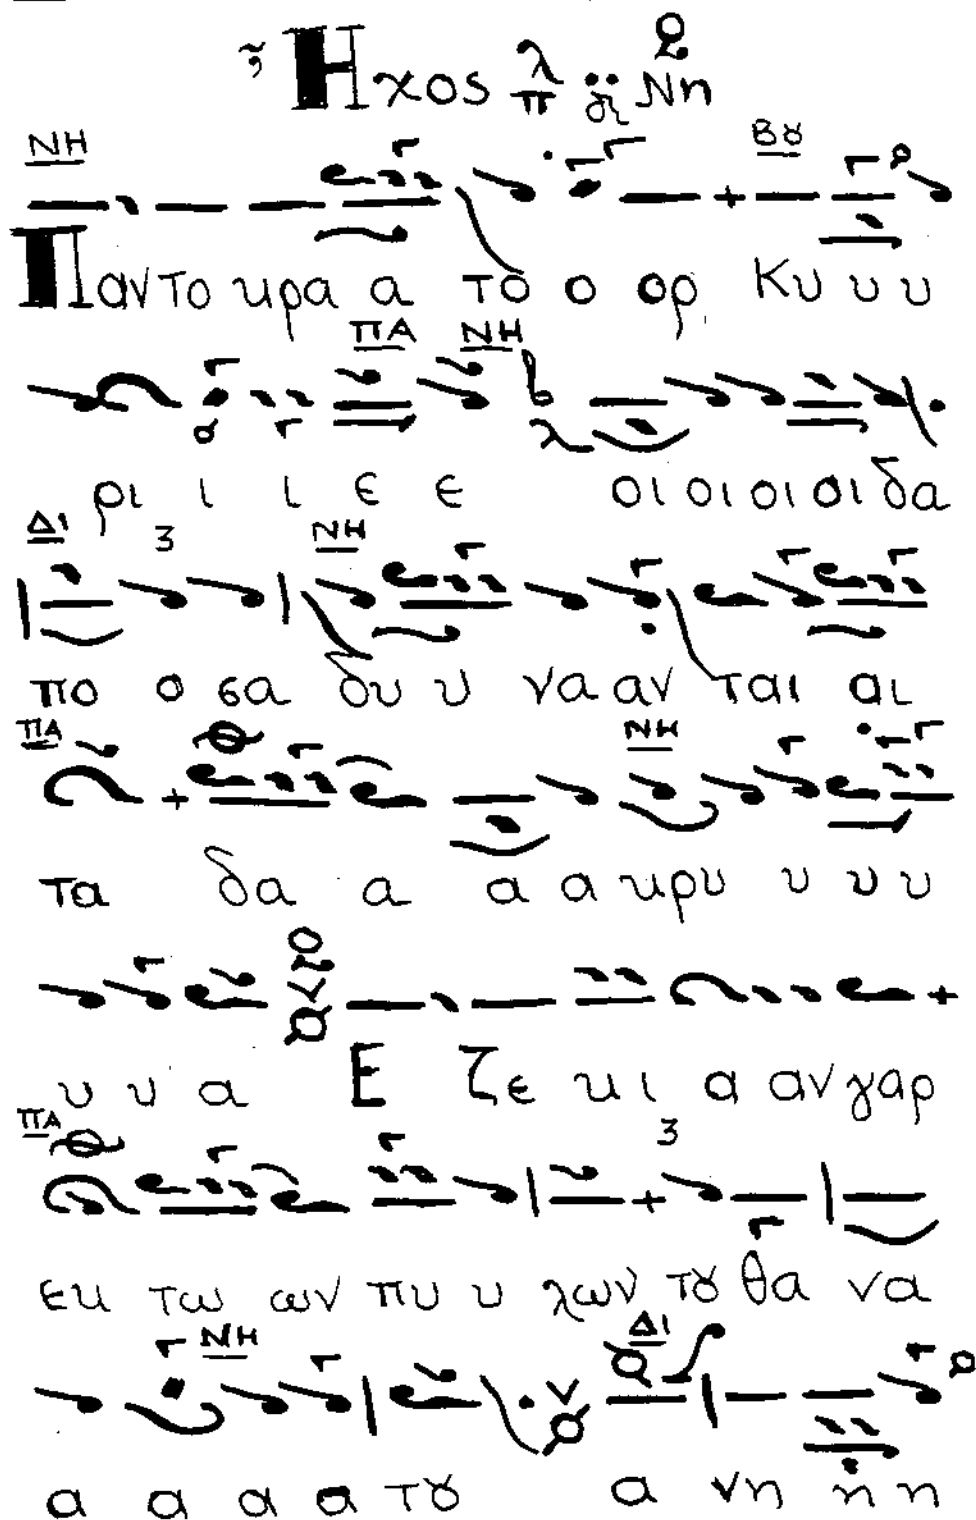 Ηχος λ π δι Νη
ΝΗ Βȣ
Παντο κρα α το ο ορ Κυ υ υ
ΠΑ ΝΗ
ρι ι ι ε ε οι οι οι οι δα
Δι 3 ΝΗ
πο ο σα δυ υ να αν ται αι
ΠΑ ΝΗ
τα δα α α α κρυ υ υ υ
υ υ α Ε ζε κι α αν γαρ
ΠΑ 3
εκ τω ων πυ υ λων τȣ θα να
ΝΗ Δι
α α α α τȣ α νη η η